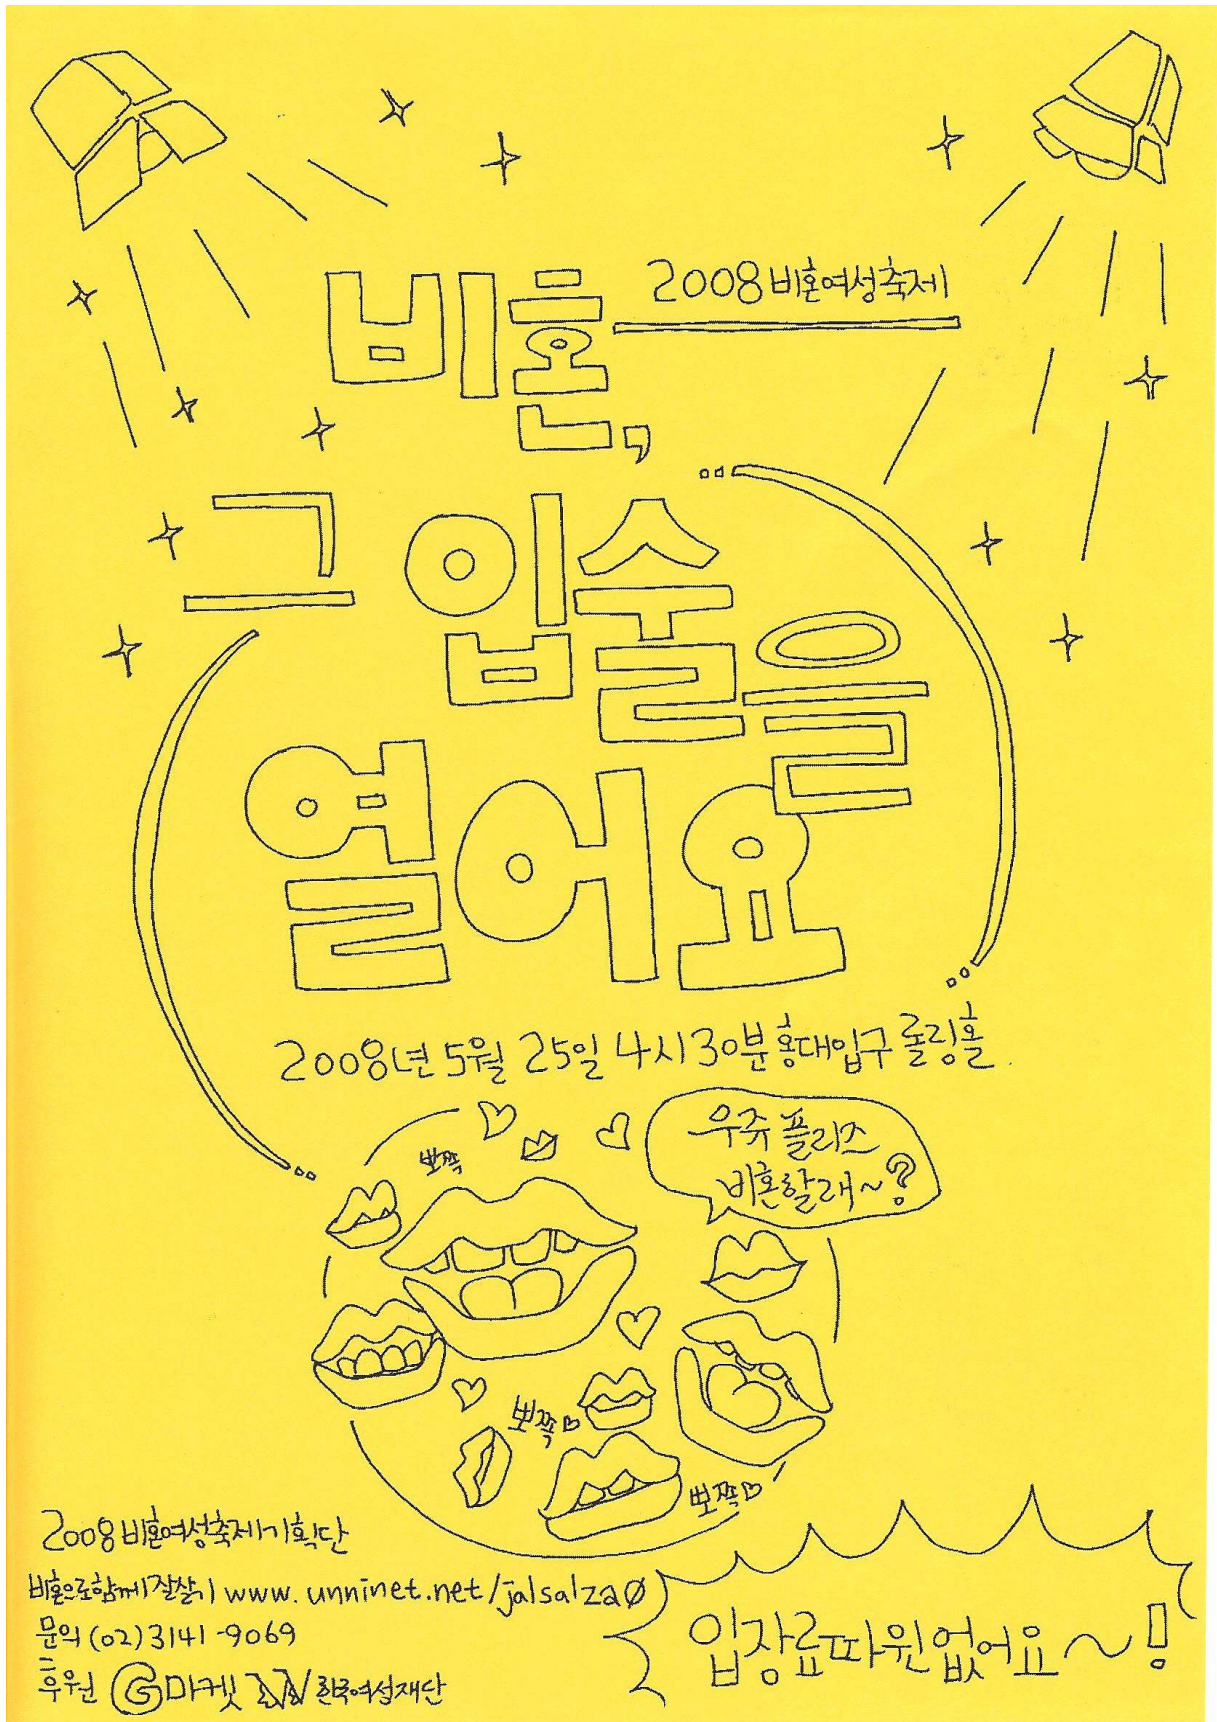 2008비혼여성축제
비혼,
그 입술을
열어요
2008년 5월 25일 4시30분 홍대입구 롤링홀
우쥬 플리즈
비혼할래~?
뽀쪽
뽀쪽
뽀쪽
2008비혼여성축제기획단
비혼으로함께잘살기 www.unninet.net/jalsalza0
문의 (02)3141-9069
후원 G마켓 한국여성재단
입장료따윈없어요~!